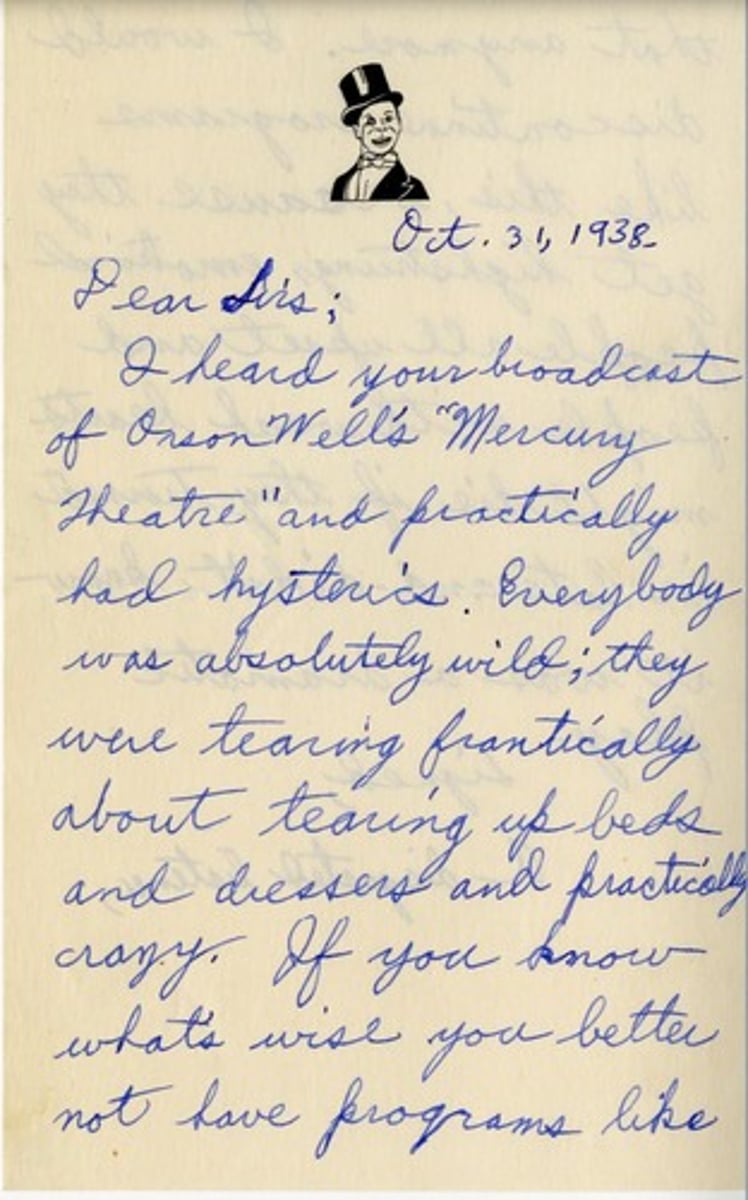 Oct. 31, 1938.
Dear Sirs;
I heard your broadcast
of Orson Well's "Mercury
Theatre" and practically
had hysterics. Everybody
was absolutely wild; they
were tearing frantically
about tearing up beds
and dressers and practically
crazy. If you know
what's wise you better
not have programs like